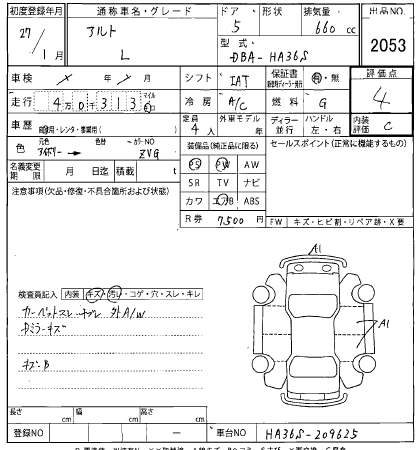 初度登録年月 通称車名・グレード ドア 形状 排気量 出品NO
27/1月 アルト L 5 660cc 2053
型式 DBA-HA36S
車検 / / 月 シフト IAT 保証書 有・無 評価点
走行 4万0千313 マイル 冷房 A/C 燃料 G 4
車歴 自家用・レンタ・事業用( ) 定員 4人 外車モデル 年 ディーラー 並行 ハンドル 左・右 内装評価 C
色 元色 色替 カラーNO ZVG
装備品(純正品に限る) セールスポイント(正常に機能するもの)
名義変更期限 月 日迄 積載 t
PS PW AW
SR TV ナビ
カワ エアB ABS
R券 7,500円
注意事項(欠品・修復・不具合箇所および状態)
FW キズ・ヒビ割・リペア跡・X要
検査員記入 内装 キズ・汚レ・コゲ・穴・スレ・キレ
カーペットスレ 外A/W
ミラーキズ
キズ・B
A1
A1
長さ cm 幅 cm 高さ cm
登録NO 車台NO HA36S-209625